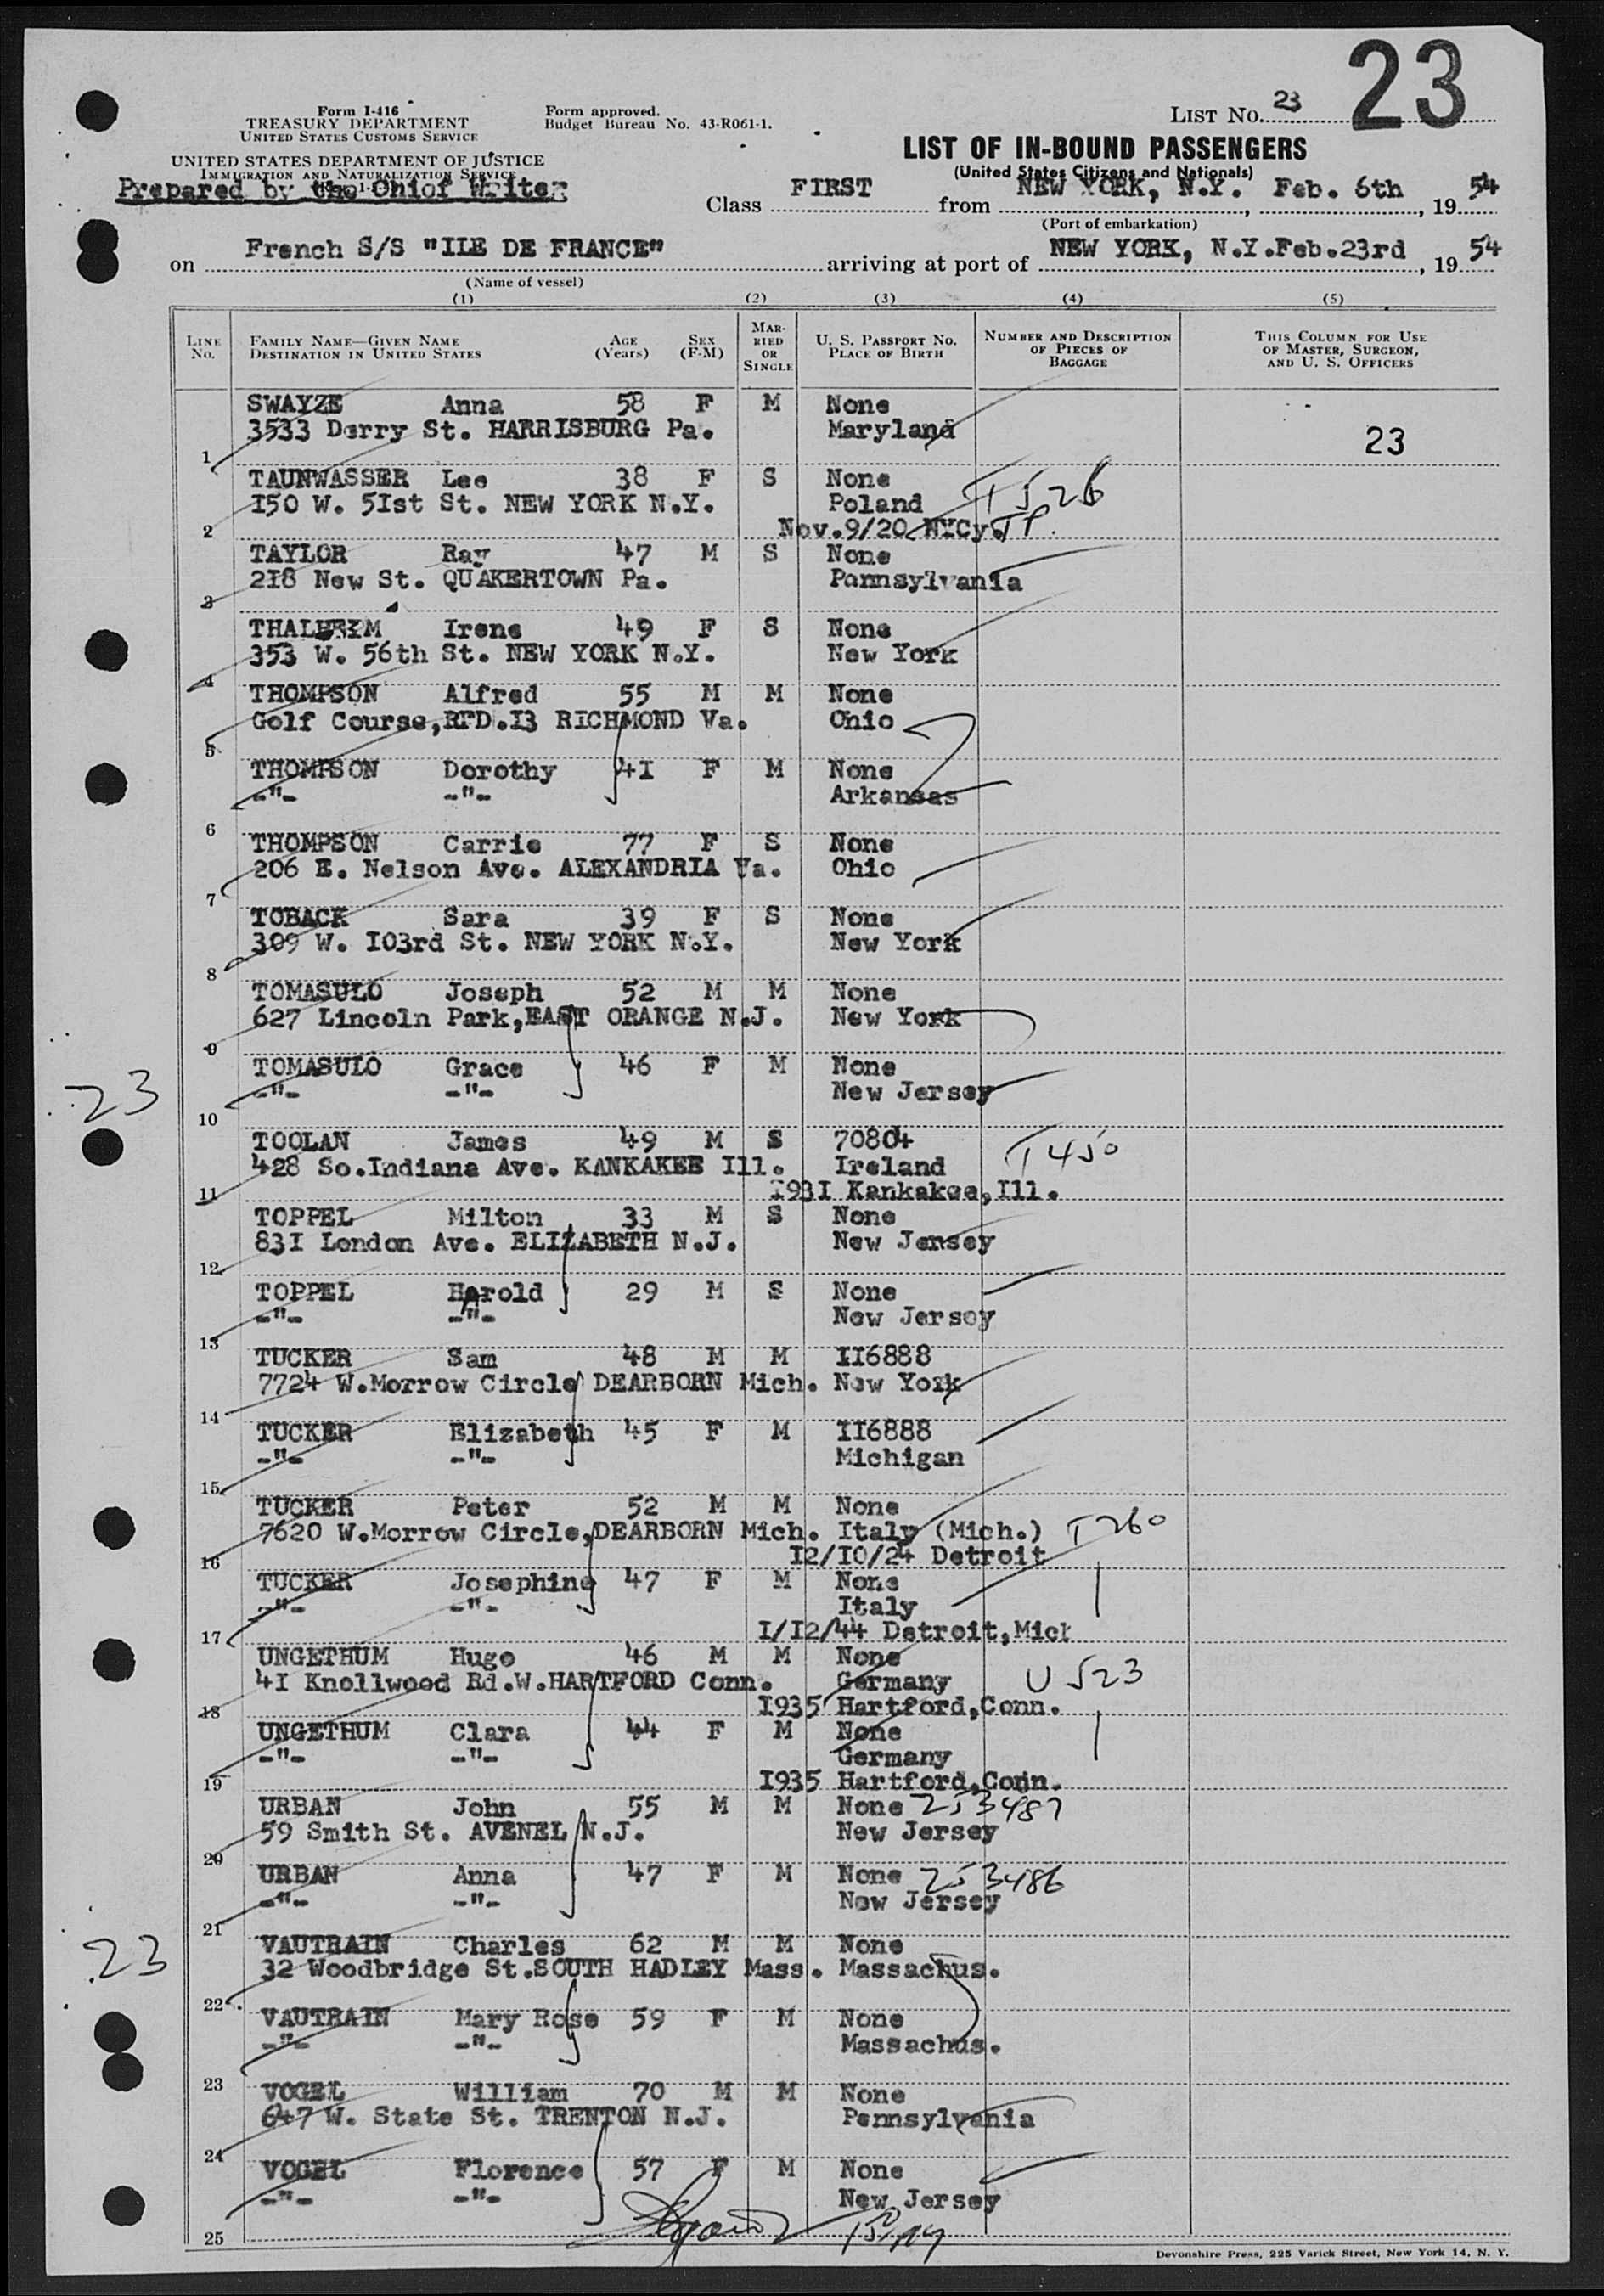 23
Form I-416
TREASURY DEPARTMENT
UNITED STATES CUSTOMS SERVICE
Form approved.
Budget Bureau No. 43-R061-1.
LIST NO. 23
UNITED STATES DEPARTMENT OF JUSTICE
IMMIGRATION AND NATURALIZATION SERVICE
Prepared by the Chief Writer
LIST OF IN-BOUND PASSENGERS
(United States Citizens and Nationals)
Class FIRST from NEW YORK, N.Y. Feb. 6th, 19 54
(Port of embarkation)
on French S/S "ILE DE FRANCE" arriving at port of NEW YORK, N.Y. Feb.23rd, 19 54
(Name of vessel)
(1) (2) (3) (4) (5)
LINE NO. FAMILY NAME—GIVEN NAME DESTINATION IN UNITED STATES AGE (Years) SEX (F-M) MARRIED OR SINGLE U. S. PASSPORT NO. PLACE OF BIRTH NUMBER AND DESCRIPTION OF PIECES OF BAGGAGE THIS COLUMN FOR USE OF MASTER, SURGEON, AND U. S. OFFICERS
SWAYZE Anna 58 F M None
3533 Derry St. HARRISBURG Pa. Maryland 23
1
TAUNWASSER Lee 38 F S None T526
150 W. 51st St. NEW YORK N.Y. Poland
2 Nov.9/20 NYCy.
TAYLOR Ray 47 M S None
218 New St. QUAKERTOWN Pa. Pennsylvania
3
THALHEIM Irene 49 F S None
353 W. 56th St. NEW YORK N.Y. New York
4
THOMPSON Alfred 55 M M None
Golf Course,RFD.I3 RICHMOND Va. Ohio
5
THOMPSON Dorothy 41 F M None
-"- -"- Arkansas
6
THOMPSON Carrie 77 F S None
206 E. Nelson Ave. ALEXANDRIA Va. Ohio
7
TOBACK Sara 39 F S None
309 W. I03rd St. NEW YORK N.Y. New York
8
TOMASULO Joseph 52 M M None
627 Lincoln Park,EAST ORANGE N.J. New York
9
TOMASULO Grace 46 F M None
-"- -"- New Jersey
23
10
TOOLAN James 49 M S 70804 T450
428 So.Indiana Ave. KANKAKEE Ill. Ireland
11 1931 Kankakee,Ill.
TOPPEL Milton 33 M S None
831 London Ave. ELIZABETH N.J. New Jersey
12
TOPPEL Harold 29 M S None
-"- -"- New Jersey
13
TUCKER Sam 48 M M II6888
7724 W.Morrow Circle DEARBORN Mich. New York
14
TUCKER Elizabeth 45 F M II6888
-"- -"- Michigan
15
TUCKER Peter 52 M M None
7620 W.Morrow Circle,DEARBORN Mich. Italy (Mich.) T260
16 I2/IO/24 Detroit
TUCKER Josephine 47 F M None
-"- -"- Italy
17 I/I2/44 Detroit,Mich
UNGETHUM Hugo 46 M M None
41 Knollwood Rd.W.HARTFORD Conn. Germany U523
18 1935 Hartford,Conn.
UNGETHUM Clara 44 F M None
-"- -"- Germany
19 1935 Hartford,Conn.
URBAN John 55 M M None 253487
59 Smith St. AVENEL N.J. New Jersey
20
URBAN Anna 47 F M None 253486
-"- -"- New Jersey
21
VAUTRAIN Charles 62 M M None
32 Woodbridge St.SOUTH HADLEY Mass. Massachus.
23
22
VAUTRAIN Mary Rose 59 F M None
-"- -"- Massachus.
23
VOGEL William 70 M M None
647 W. State St. TRENTON N.J. Pennsylvania
24
VOGEL Florence 57 F M None
-"- -"- New Jersey
25
Devonshire Press, 225 Varick Street, New York 14, N. Y.